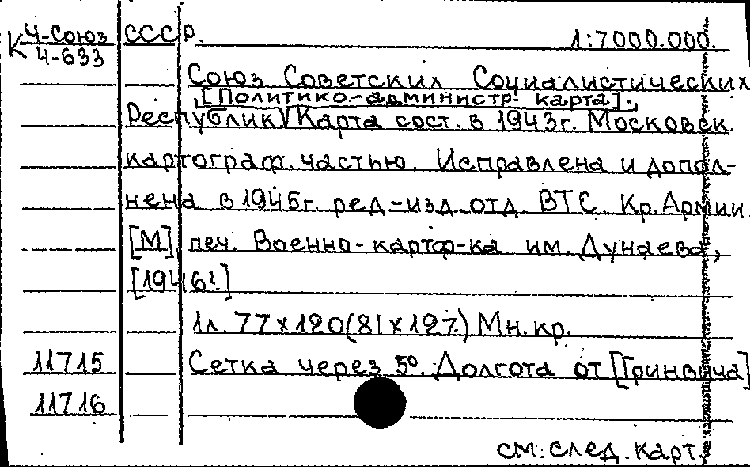 К Ч-Союз СССР. 1:7000.000.
Ч-633
Союз Советских Социалистических
[Политико-администр. карта].
Республик) Карта сост. в 1943г. Московск.
картограф. частью. Исправлена и допол-
нена в 1945г. ред-изд. отд. ВТС Кр. Армии.
[М], печ. Военно-картф-ка им. Дунаева,
[1946г.]
1л. 77х120 (81х127) Мн. кр.
11715 Сетка через 5º. Долгота от [Гринвича]
11716
см. след. карт.